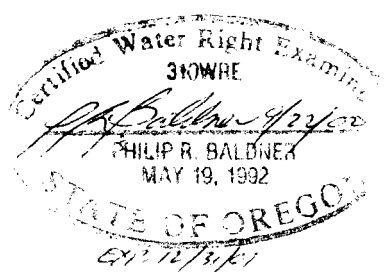 Certified Water Right Examine
310WRE
Baldner
PHILIP R. BALDNER
MAY 19, 1992
STATE OF OREGO
EXP. 12/31/01